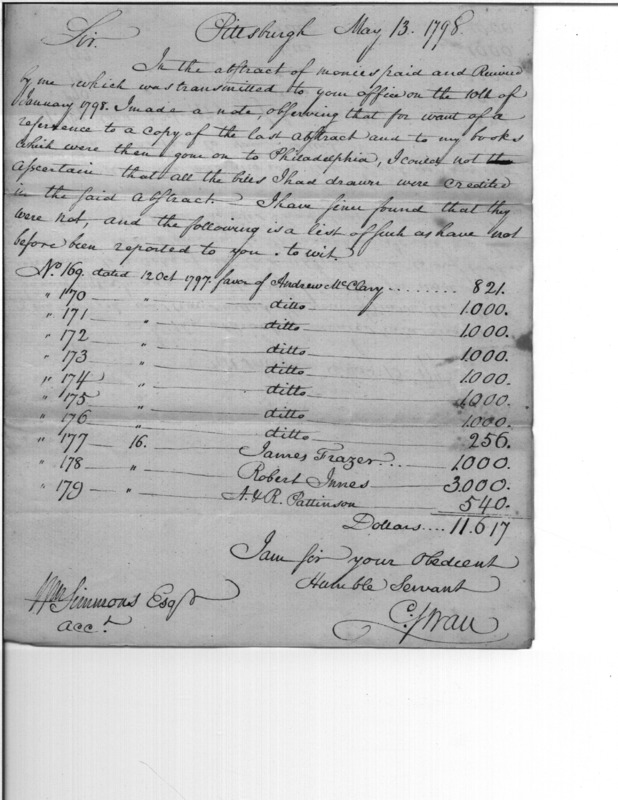 Pittsburgh May 13. 1798.
Sir.
In the abstract of monies paid and Received
by me, which was transmitted to your office on the 10th of
January 1798. I made a note, observing that for want of a
reference to a copy of the last abstract and to my books
which were then gone on to Philadelphia, I could not the
ascertain that all the bills I had drawn were credited
in the said abstract. I have since found that they
were not, and the following is a list of such as have not
before been reported to you. to wit.
No. 169. dated 12 Oct 1797. favor of Andrew McClary ........ 821.
" 170 " ditto 1.000.
" 171 " ditto 1.000.
" 172 " ditto 1.000.
" 173 " ditto 1.000.
" 174 " ditto 1.000.
" 175 " ditto 1.000.
" 176 " ditto 256.
" 177 16. James Frazer ... 1.000.
" 178 " Robert Innes 3.000.
" 179 " A. & R. Pattinson 540.
Dollars .... 11.617
I am Sir your Obedient
Humble Servant
Wm Simmons Esqr
Acct.
C. Swan